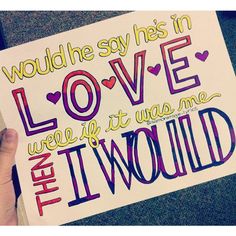 would he say he's in
L♥O♥V♥E
well if it was me
THEN I WOULD